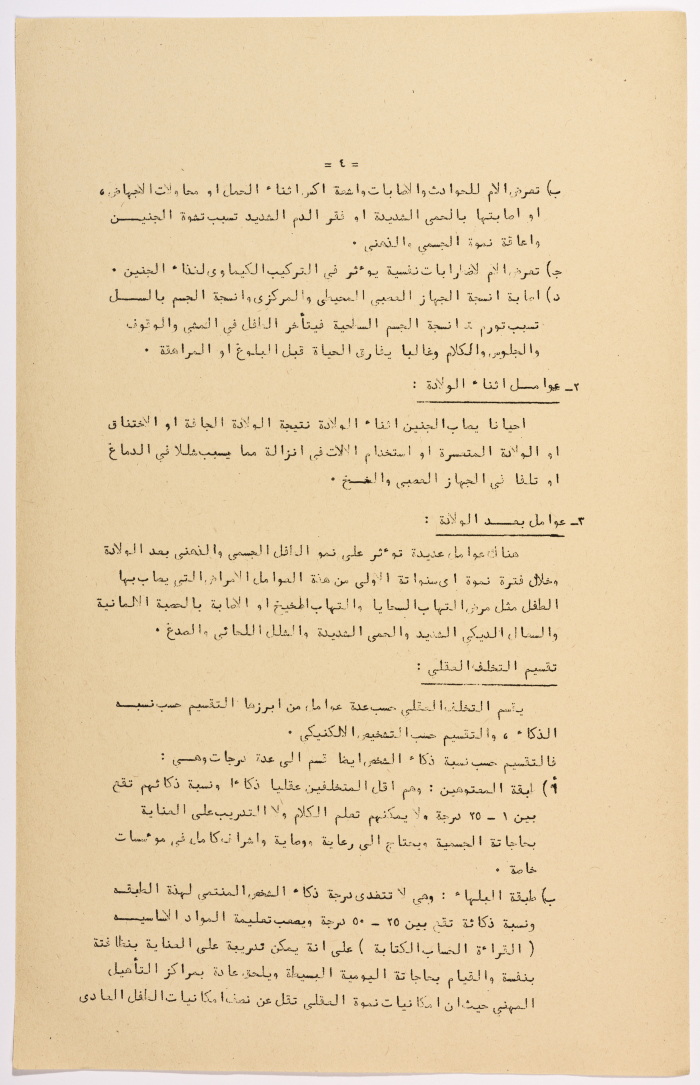 = ٤ =
ب) تعرض الام للحوادث والاصابات واشعة اكس اثناء الحمل او محاولات الاجهاض ،
او اصابتها بالحمى الشديدة او فقر الدم الشديد تسبب تشوة الجنين
واعاقة نموة الجسمي والذهني .
ج) تعرض الام لاضطرابات نفسية يوءثر في التركيب الكيماوى لغذاء الجنين .
د) اصابة انسجة الجهاز العصبي المحيطي والمركزى وانسجة الجسم بالسل
تسبب تورم انسجة الجسم السطحية فيتأخر الطفل في المشي والوقوف
والجلوس والكلام وغالبا يفارق الحياة قبل البلوغ او المراهقة .
٢ـ عوامل اثناء الولادة :
احيانا يصاب الجنين اثناء الولادة نتيجة الولادة الجافة او الاختناق
او الولادة المتعسرة او استخدام الالات في انزالة مما يسبب شللا في الدماغ
او تلفا في الجهاز العصبي والمخيخ .
٣ـ عوامل بعد الولادة :
هناك عوامل عديدة توءثر على نمو الطفل الجسمي والذهني بعد الولادة
وخلال فترة نموة اى سنواتة الاولى من هذة العوامل الامراض التي يصاب بها
الطفل مثل مرض التهاب السحايا والتهاب المخيخ او الاصابة بالحصبة الالمانية
والسعال الديكي الشديد والحمى الشديدة والشلل اللحائي والصدغ .
تقسيم التخلف العقلي :
يقسم التخلف العقلي حسب عدة عوامل من ابرزها التقسيم حسب نسبه
الذكاء ، والتقسيم حسب التشخيص الالكنيكي .
فالتقسيم حسب نسبة ذكاء الشخص ايضا قسم الى عدة درجات وهي :
أ) طبقة المعتوهين : وهم اقل المتخلفين عقليا ذكاءا ونسبة ذكائهم تقع
بين ١ ـ ٢٥ درجة ولا يمكنهم تعلم الكلام ولا التدريب على العناية
بحاجاتة الجسمية ويحتاج الى رعاية ووصاية واشراف كامل في موءسسات
خاصة .
ب) طبقة البلهاء : وهي لا تتعدى درجة ذكاء الشخص المنتمي لهذة الطبقه
ونسبة ذكائة تقع بين ٢٥ ـ ٥٠ درجة ويصعب تعليمة المواد الاساسيه
( القراءة الحساب الكتابة ) على انة يمكن تدريبة على العناية بنظافتة
بنفسة والقيام بحاجاتة اليومية البسيطة ويلحق عادة بمراكز التأهيل
المهني حيث ان امكانيات نموة العقلي تقل عن نصف امكانيات الطفل العادى